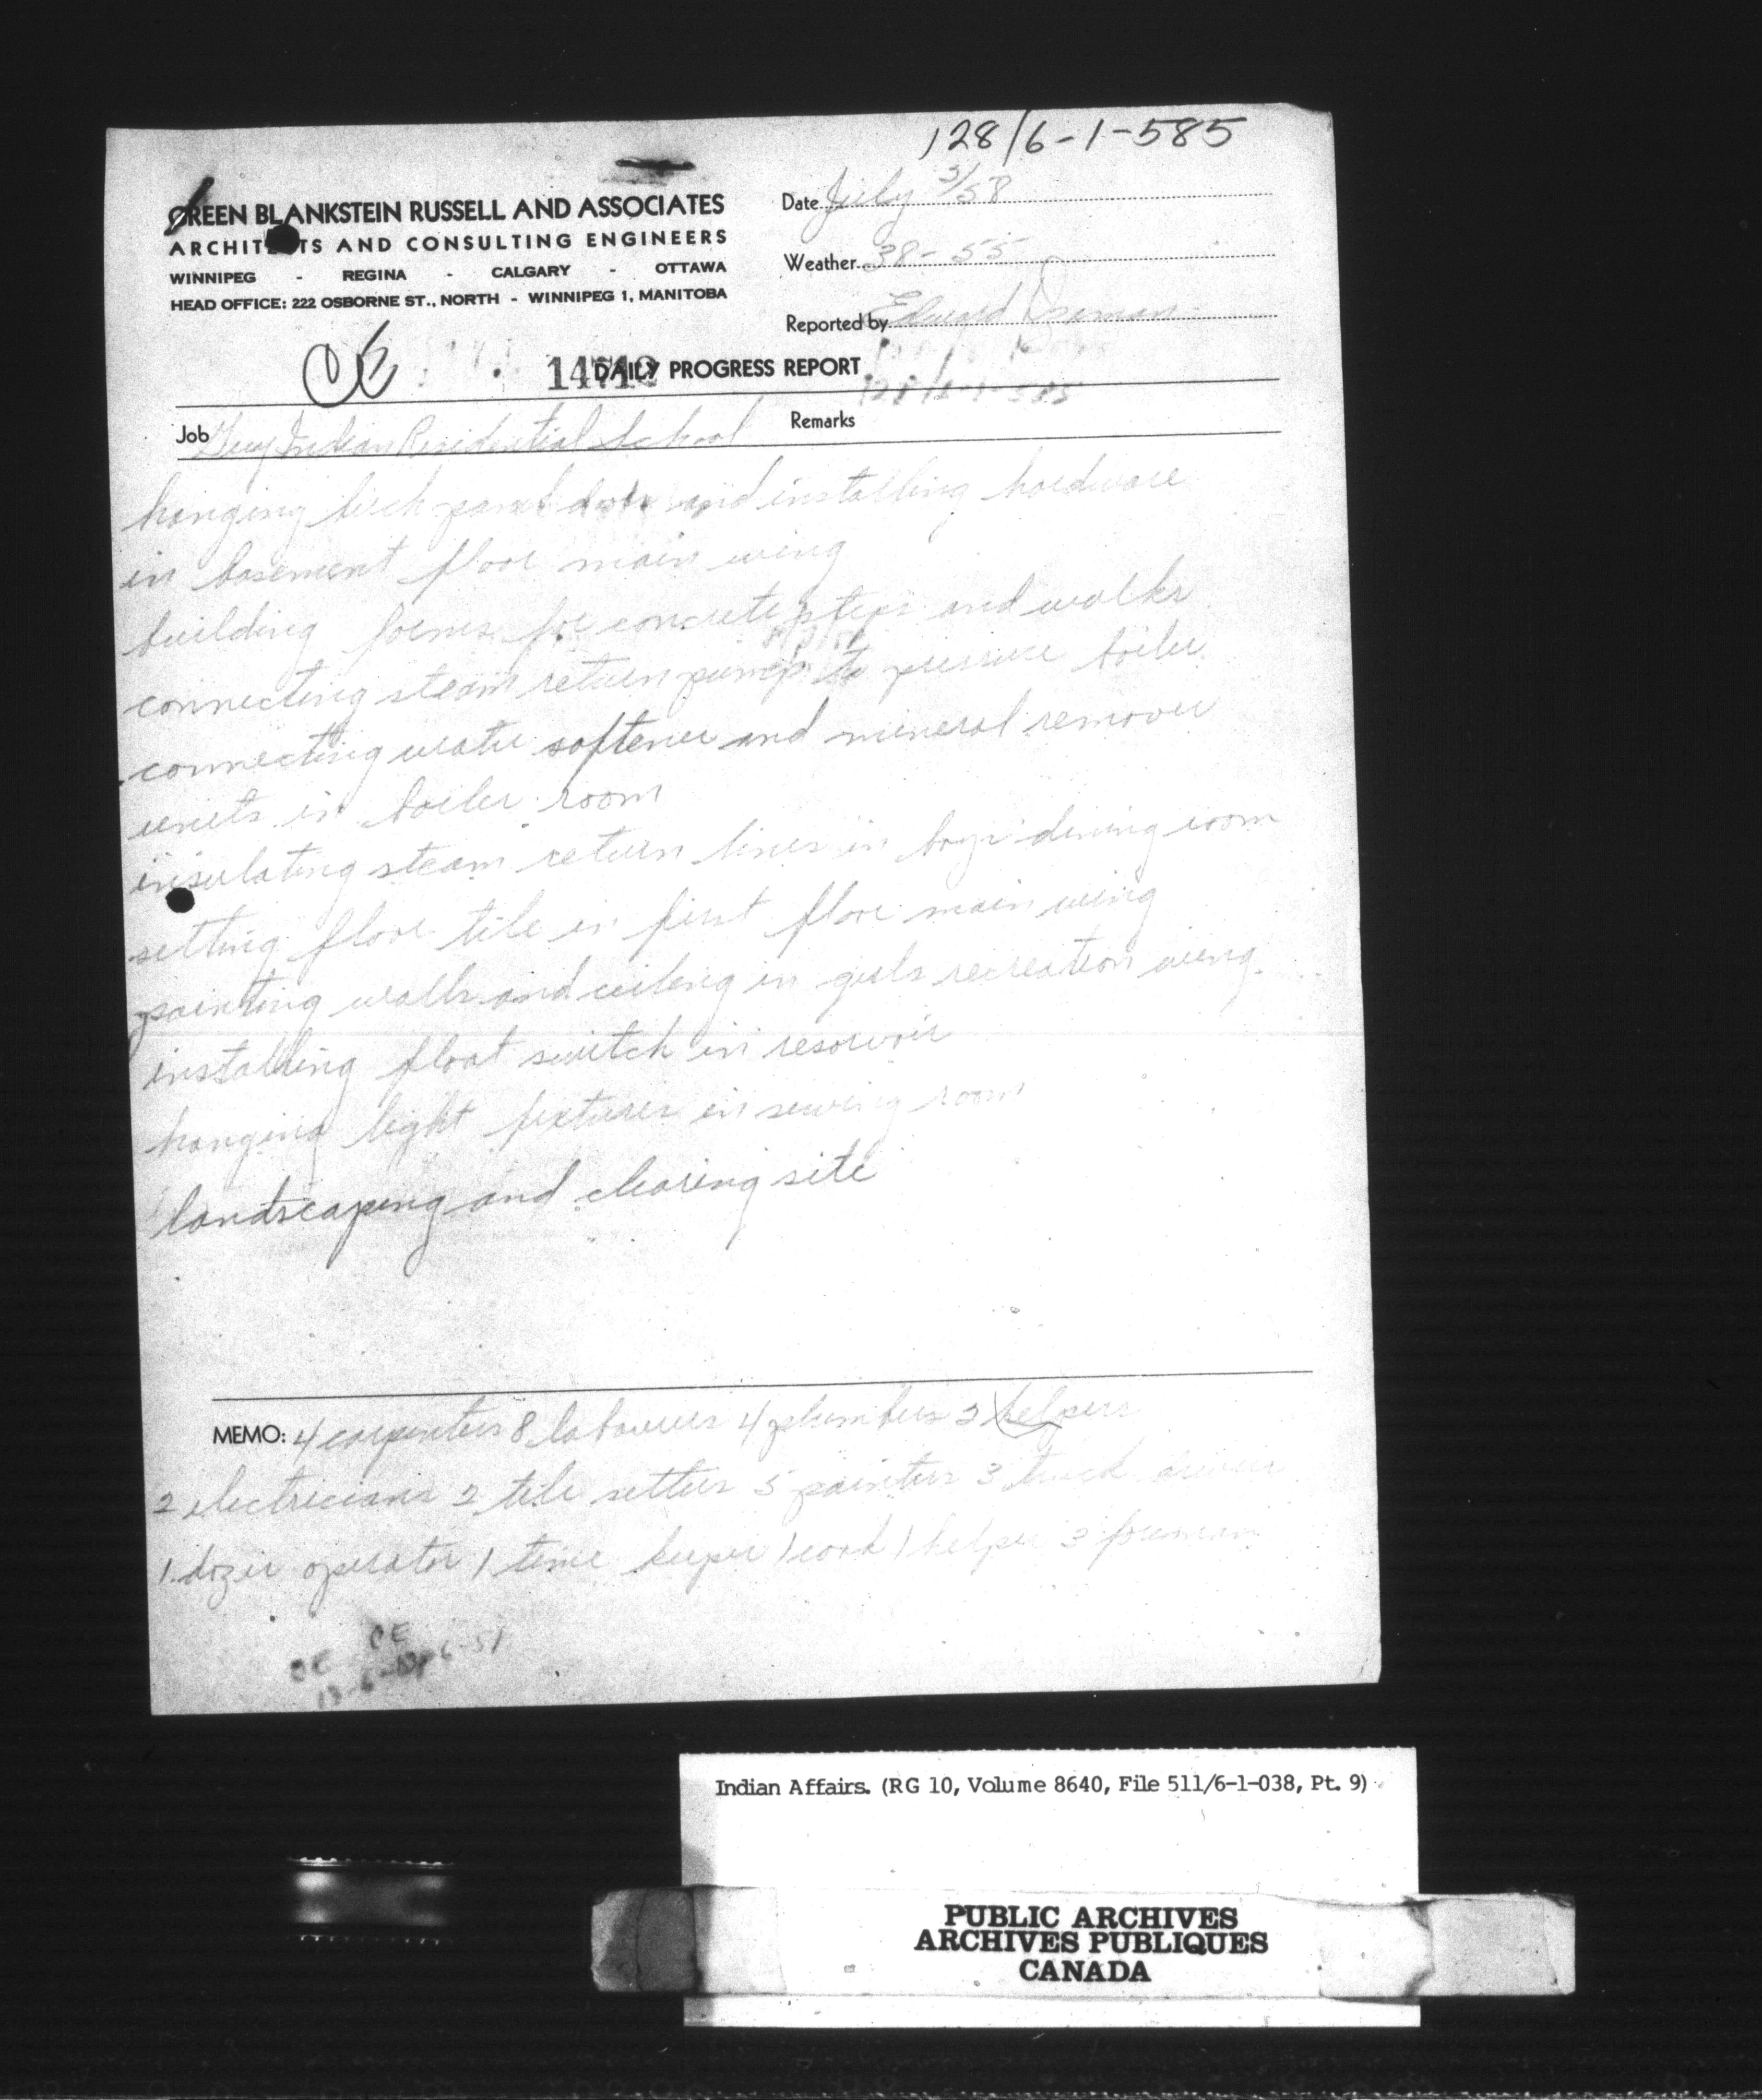 128/6-1-585
GREEN BLANKSTEIN RUSSELL AND ASSOCIATES
ARCHITECTS AND CONSULTING ENGINEERS
WINNIPEG - REGINA - CALGARY - OTTAWA
HEAD OFFICE: 222 OSBORNE ST., NORTH - WINNIPEG 1, MANITOBA
Date July 3/58
Weather 38-55
Reported by Edward
DAILY PROGRESS REPORT
Job Guy Indian Residential School
Remarks
hanging panel and installing hardware
in basement floor main wing
building forms for concrete steps and walks
connecting steam return pump to pressure boiler
connecting water softener and mineral remover
units in boiler room
insulating steam return lines in boys dining room
setting floor tile in first floor main wing
painting walls and ceiling in girls recreation wing
installing float switch in resorvoir
hanging light fixtures in sewing room
landscaping and clearing site
MEMO: 4 carpenters 8 labourers 4 plumbers 2 helpers
2 electricians 2 tile setters 5 painters 3 truck drivers
1 dozer operator 1 time keeper 1 cook 1 helper 3 foreman
Indian Affairs. (RG 10, Volume 8640, File 511/6-1-038, Pt. 9)
PUBLIC ARCHIVES
ARCHIVES PUBLIQUES
CANADA